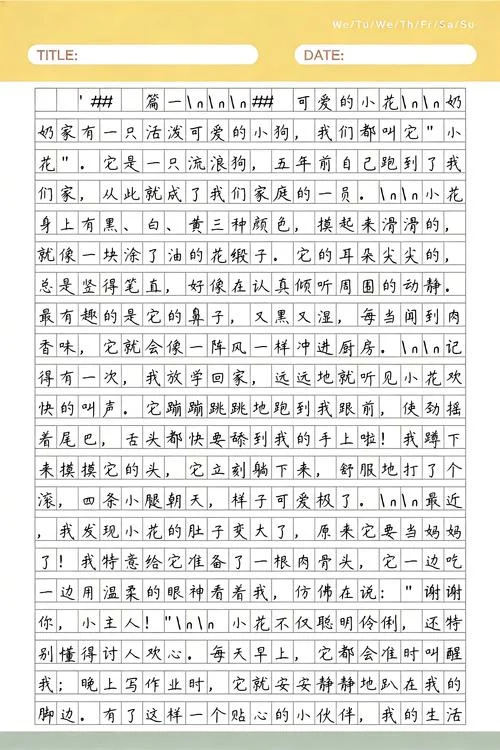 We/Tu/We/Th/Fr/Sa/Su
TITLE:
DATE:
'## 篇一\n\n\n## 可爱的小花\n\n奶
奶家有一只活泼可爱的小狗，我们都叫它"小
花"。它是一只流浪狗，五年前自己跑到了我
们家，从此就成了我们家庭的一员。\n\n小花
身上有黑、白、黄三种颜色，摸起来滑滑的，
就像一块涂了油的花缎子。它的耳朵尖尖的，
总是竖得笔直，好像在认真倾听周围的动静。
最有趣的是它的鼻子，又黑又湿，每当闻到肉
香味，它就会像一阵风一样冲进厨房。\n\n记
得有一次，我放学回家，远远地就听见小花欢
快的叫声。它蹦蹦跳跳地跑到我跟前，使劲摇
着尾巴，舌头都快要舔到我的手上啦！我蹲下
来摸摸它的头，它立刻躺下来，舒服地打了个
滚，四条小腿朝天，样子可爱极了。\n\n最近
，我发现小花的肚子变大了，原来它要当妈妈
了！我特意给它准备了一根肉骨头，它一边吃
一边用温柔的眼神看着我，仿佛在说："谢谢
你，小主人！"\n\n 小花不仅聪明伶俐，还特
别懂得讨人欢心。每天早上，它都会准时叫醒
我；晚上写作业时，它就安安静静地趴在我的
脚边。有了这样一个贴心的小伙伴，我的生活